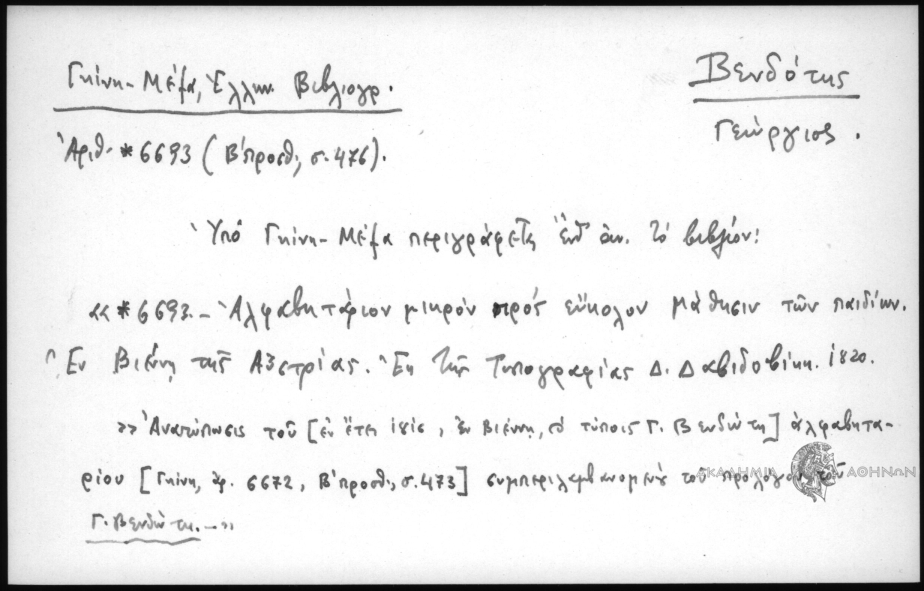 Γκίνη-Μέξα, Ἑλλην. Βιβλιογρ.
Βενδότης
Γεώργιος.
Ἀριθ. *6693 (Β΄προσθ., σ. 476).
Ὑπό Γκίνη-Μέξα περιγράφεται ἐνθ᾽ ἀν. τό βιβλίον:
«*6693.- Ἀλφαβητάριον μικρόν πρός εὔκολον μάθησιν τῶν παιδίων.
Ἐν Βιέννῃ τῆς Ἀουστρίας. Ἐκ τῆς Τυπογραφίας Δ. Δαβιδοβίκη. 1820.
»Ἀνατύπωσις τοῦ [ἐν ἔτει 1816, ἐν Βιέννῃ, τύποις Γ. Βενδώτη] ἀλφαβητα-
ρίου [Γκίνη, ἀρ. 6672, Β΄προσθ., σ. 473] συμπεριλαμβανομένου τοῦ προλόγου τοῦ
Γ. Βενδώτη.-»
ΑΚΑΔΗΜΙΑ ΑΘΗΝΩΝ